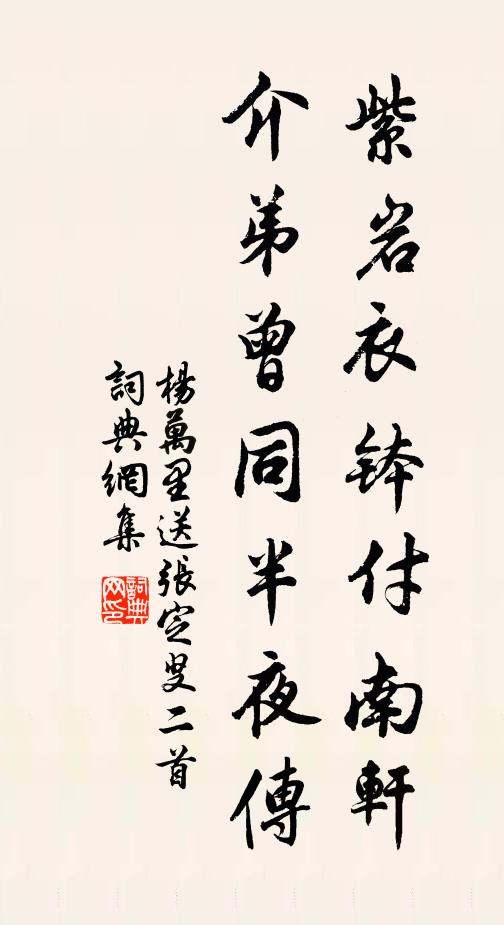 紫岩衣鉢付南軒
介弟曾同半夜傳
楊萬里送張定叟二首
詞典網集
詞典網印